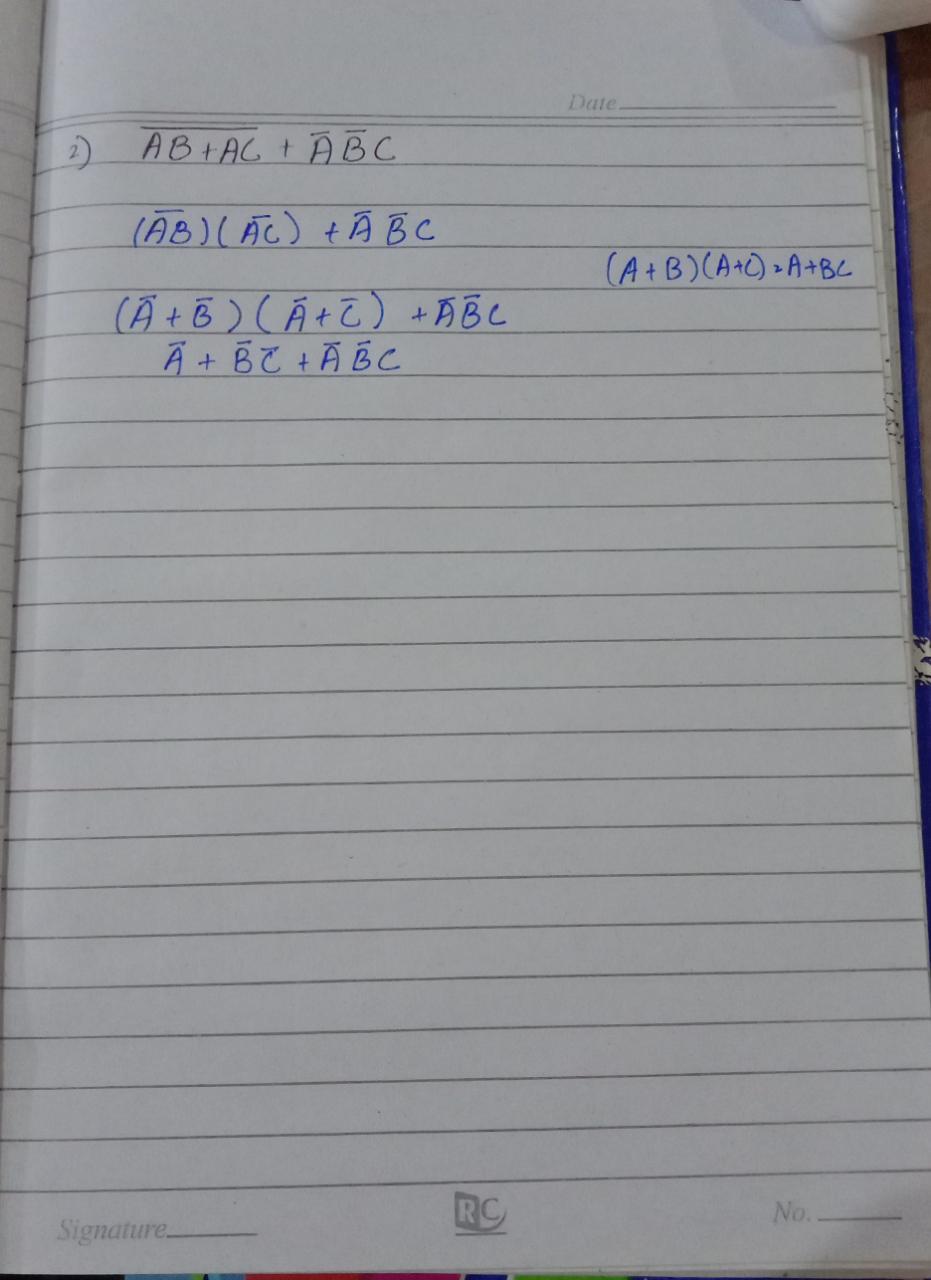 Date
2) A̅B̅ ̅+̅A̅C̅ + A̅ B̅ C
(A̅B̅)(A̅C̅) + A̅ B̅ C
(A+B)(A+C)=A+BC
(A̅+B̅)(A̅+C̅) + A̅B̅C
A̅ + B̅C̅ + A̅ B̅C
Signature RC No.